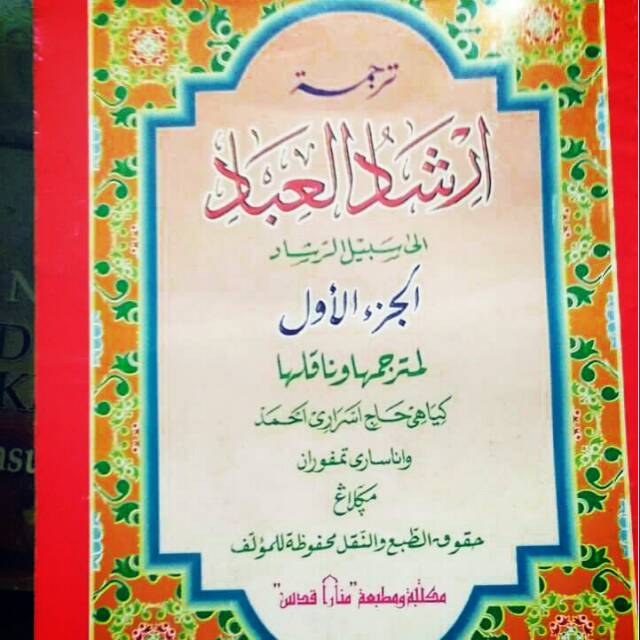 ترجمة
ارشاد العباد
الى سبيل الرشاد
الجزء الأول
لمترجمها وناقلها
كياهى حاج اسرارى احمد
واناسارى تمفوران
مڮلاڠ
حقوق الطبع والنقل محفوظة للمؤلف
مكتبة ومطبعة "منارا قدس"